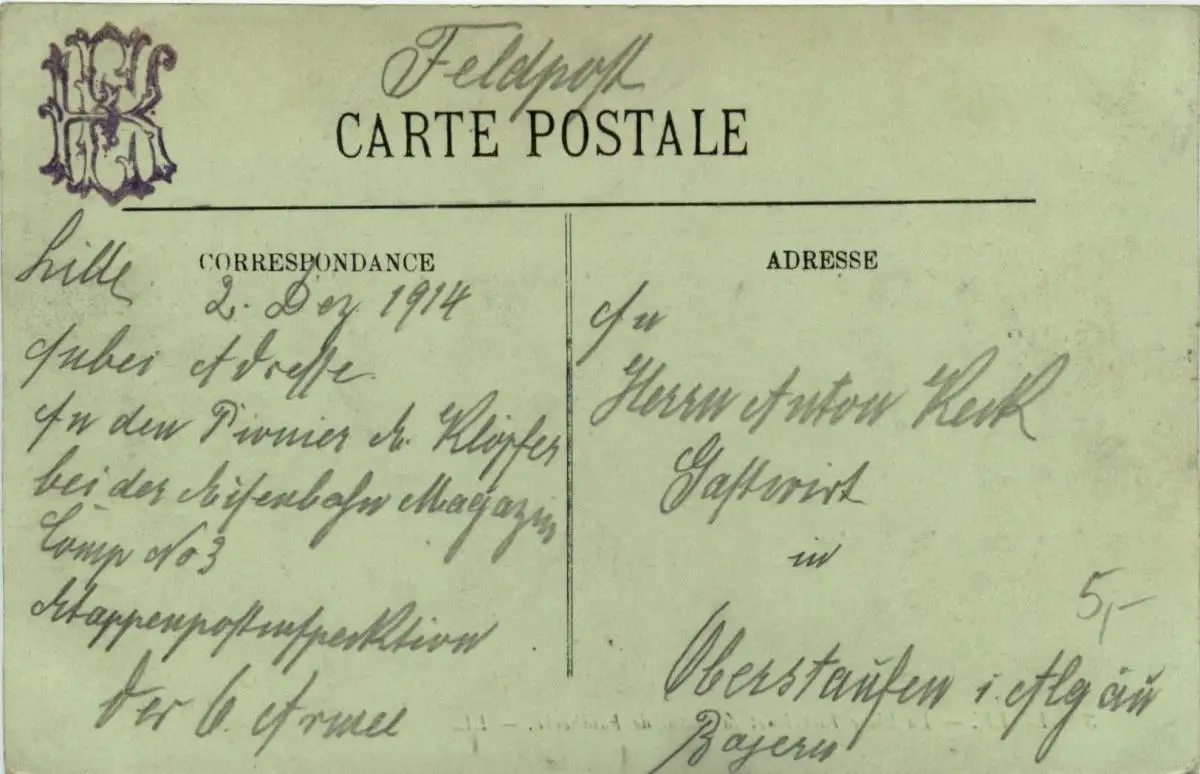 Feldpost
CARTE POSTALE
CORRESPONDANCE
Lille
2. Dez 1914
Anbei Adresse
An den Pionier A. Klöpfer
bei der Eisenbahn Magazin
Comp No 3
Etappenpostinspektion
der 6. Armee
ADRESSE
An
Herrn Anton Keck
Gastwirt
in
5,-
Oberstaufen i. Algäu
Bayern